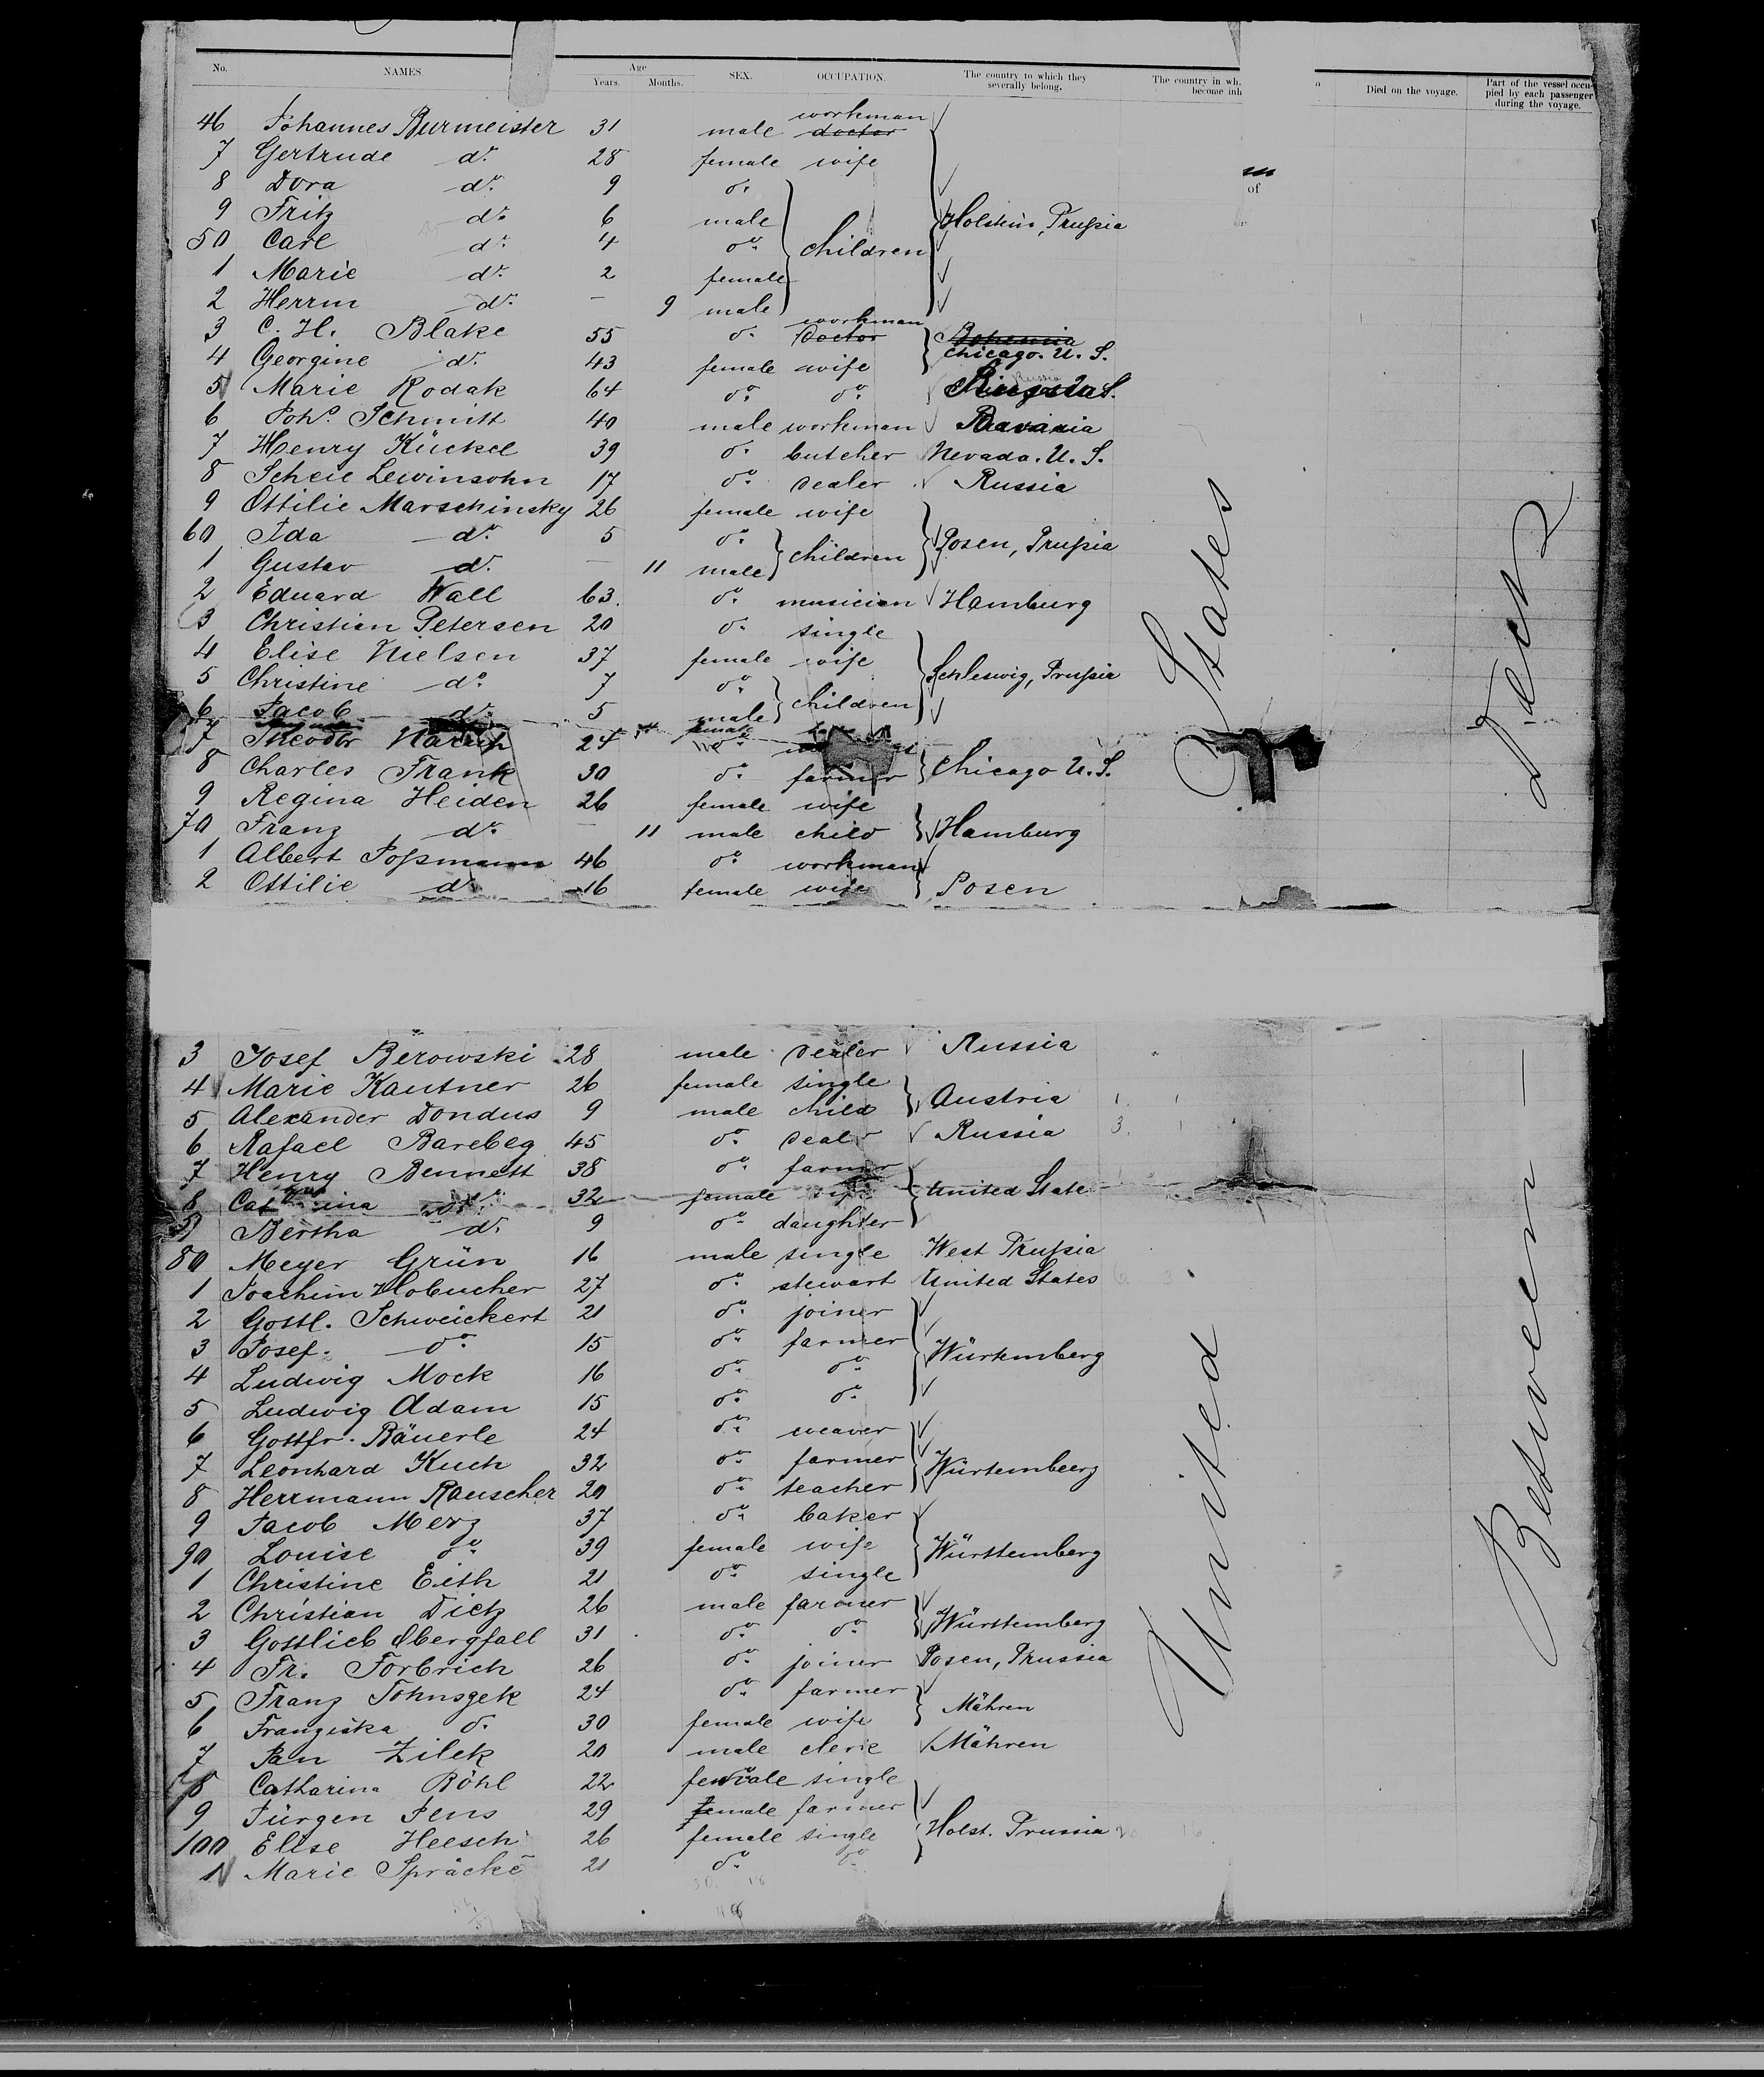 No. NAMES. Age Years. Months. SEX. OCCUPATION. The country to which they severally belong. The country in wh. become inh o of Died on the voyage. Part of the vessel occupied by each passenger during the voyage.
46 Johannes Burmeister 31 male workman doctor
7 Gertrude do. 28 female wife
8 Dora do. 9 do.
9 Fritz do. 6 male Holstein, Prussia
50 Carl do. 4 do. children
1 Marie do. 2 female
2 Herrm do. – 9 male
3 C. H. Blake 55 do. workman Doctor Bohemia
4 Georgine do. 43 female wife Chicago. U. S.
5 Marie Rodak 64 do. do. Russia
6 Johs. Schmitt 40 male workman Bavaria
7 Henry Kückel 39 do. butcher Nevada. U. S.
8 Scheie Lewinsohn 17 do. dealer Russia
9 Ottilie Marschinsky 26 female wife
60 Ida do. 5 do. children Posen, Prussia
1 Gustav do. – 11 male
2 Eduard Wall 63. do. musician Hamburg
3 Christian Petersen 20 do. single
4 Elise Nielsen 37 female wife Schleswig, Prussia
5 Christine do. 7 do. children
6 Jacob do. 5 male
7 Theodor 24 female
8 Charles Frank 30 do. farmer Chicago U. S.
9 Regina Heiden 26 female wife
70 Franz do. – 11 male child Hamburg
1 Albert Possmann 46 do. workman
2 Ottilie do. 16 female wife Posen
3 Josef Berowski 28 male dealer Russia
4 Marie Kautner 26 female single
5 Alexander Dondus 9 male child Austria
6 Rafael Barebeg 45 do. dealer Russia
7 Henry Bennett 38 do. farmer
8 Catharina do. 32 female wife United State
9 Bertha do. 9 do. daughter
80 Meyer Grün 16 male single West Prussia
1 Joachim Hobucher 27 do. stewart United States
2 Gottl. Schweickert 21 do. joiner
3 Josef. do. 15 do. farmer Würtemberg
4 Ludwig Mock 16 do. do.
5 Ludwig Adam 15 do. do.
6 Gottfr. Bäuerle 24 do. weaver
7 Leonhard Kuch 32 do. farmer Würtemberg
8 Herrmann Rauscher 20 do. teacher
9 Jacob Merz 37 do. baker
90 Louise do. 39 female wife Württemberg
1 Christine Eith 21 do. single
2 Christian Dietz 26 male farmer
3 Gottlieb Obergfall 31 do. do. Württemberg
4 Fr. Forbrich 26 do. joiner Posen, Prussia
5 Franz Johnsgek 24 do. farmer Mähren
6 Franziska do. 30 female wife
7 Jan Zilek 20 male clerk Mähren
8 Catharina Röhl 22 female single
9 Jürgen Jens 29 male farmer
100 Elise Heesch 26 female single Holst. Prussia
1 Marie Spräcke 21 do. do.
United States
Between Deck